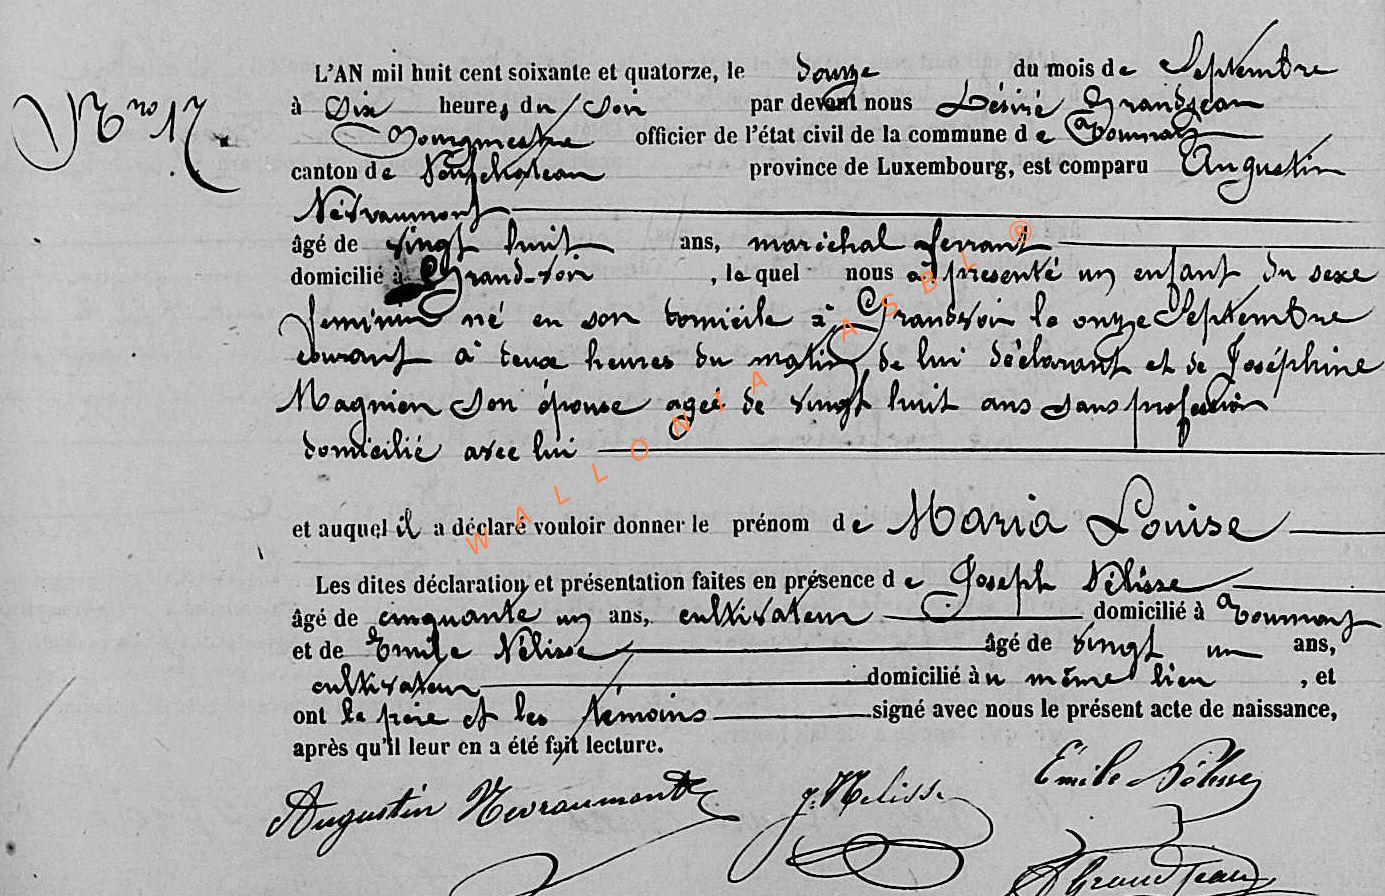 N.ro 17.
L'AN mil huit cent soixante et quatorze, le douze du mois de Septembre
à Six heures du Soir par devant nous Désiré Grandjean
Bourgmestre officier de l'état civil de la commune de Tournay
canton de Neufchateau province de Luxembourg, est comparu Augustin
Névraumont
âgé de vingt huit ans, maréchal ferrant
domicilié à Grand-voir, lequel nous a présenté un enfant du sexe
feminin né en son domicile à Grandvoir le onze Septembre
courant à deux heures du matin de lui déclarant et de Joséphine
Magnien son épouse agée de vingt huit ans sans profession
domicilié avec lui
et auquel il a déclaré vouloir donner le prénom de Maria Louise
Les dites déclaration et présentation faites en présence de Joseph Nélisse
âgé de cinquante un ans, cultivateur domicilié à Tournay
et de Emile Nélisse âgé de vingt un ans,
cultivateur domicilié au même lieu, et
ont le père et les témoins signé avec nous le présent acte de naissance,
après qu'il leur en a été fait lecture.
Augustin Nevraumont J. Nelisse Émile Nélisse
D Grandjean
WALLONIA ASBL ®